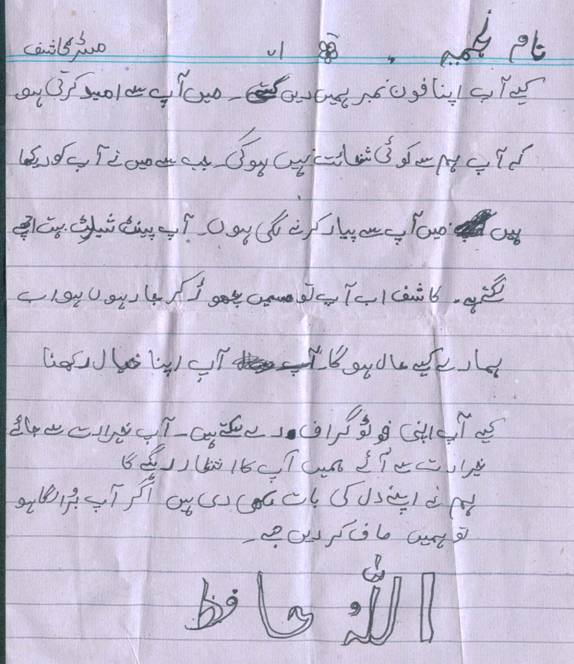 نام نجمہ ان مسٹر کاشف
کیے آپ اپنا فون نمبر ہمیں دیں گئے ۔ میں آپ سے امید کرتی ہو
کہ آپ ہم سے کوئی شکائت نہیں ہوگی۔ جب سے میں نے آپ کو دیکھا
ہیں میں آپ سے پیار کرنے لگی ہوں۔ آپ پینٹ شیلرٹ بہت اچھے
لگتے ہے۔ کاشف اب آپ تو ہمیں چھوڑ کر جا رہوں ہو اب
ہمارے کیے حال ہو گا۔ آپ آپ اپنا خیال رکھنا
کیے آپ اپنی فوٹو گراف دے سکتے ہیں۔ آپ خیرادت سے جائے
خیرادت سے آئے ہمیں آپ کا انتظار رہیگے گا
ہم نے اپنے دل کی بات لکھی دی ہیں اگر آپ بُرا لگا ہو
تو ہمیں ماف کر دیں جے۔
اللّٰہ حافظ